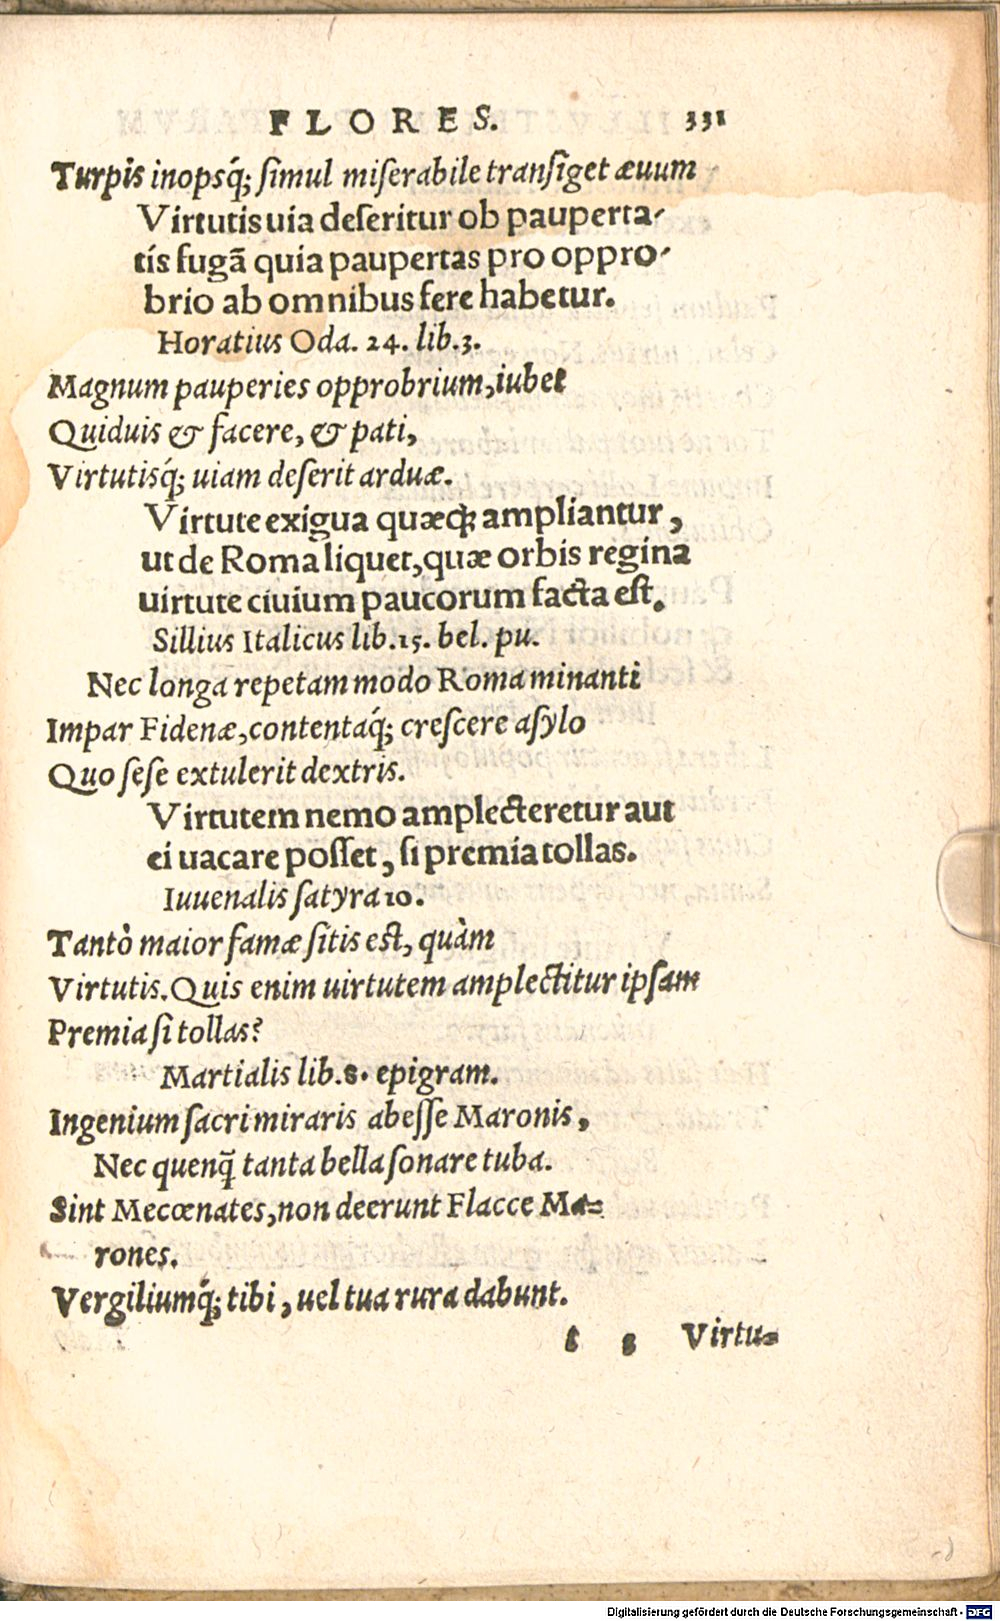 FLORES. 331
Turpis inopsq́; ſimul miſerabile tranſiget æuum
Virtutis uia deſeritur ob pauperta-
tis fugã quia paupertas pro oppro-
brio ab omnibus fere habetur.
Horatius Oda. 24. lib.3.
Magnum pauperies opprobrium, iubet
Quiduis & facere, & pati,
Virtutisq́; uiam deſerit arduæ.
Virtute exigua quæq; ampliantur,
ut de Roma liquet, quæ orbis regina
uirtute ciuium paucorum facta eſt.
Sillius Italicus lib.15. bel. pu.
Nec longa repetam modo Roma minanti
Impar Fidenæ, contentaq́; creſcere aſylo
Quo ſeſe extulerit dextris.
Virtutem nemo amplecteretur aut
ei uacare poſſet, ſi premia tollas.
Iuuenalis ſatyra 10.
Tantò maior famæ ſitis eſt, quàm
Virtutis. Quis enim uirtutem amplectitur ipſam
Premia ſi tollas?
Martialis lib.8. epigram.
Ingenium ſacri miraris abeſſe Maronis,
Nec quenq̃ tanta bella ſonare tuba.
Sint Mecœnates, non deerunt Flacce Ma-
rones.
Vergiliumq́; tibi, uel tua rura dabunt.
t 8 Virtu-
Digitalisierung gefördert durch die Deutsche Forschungsgemeinschaft - DFG